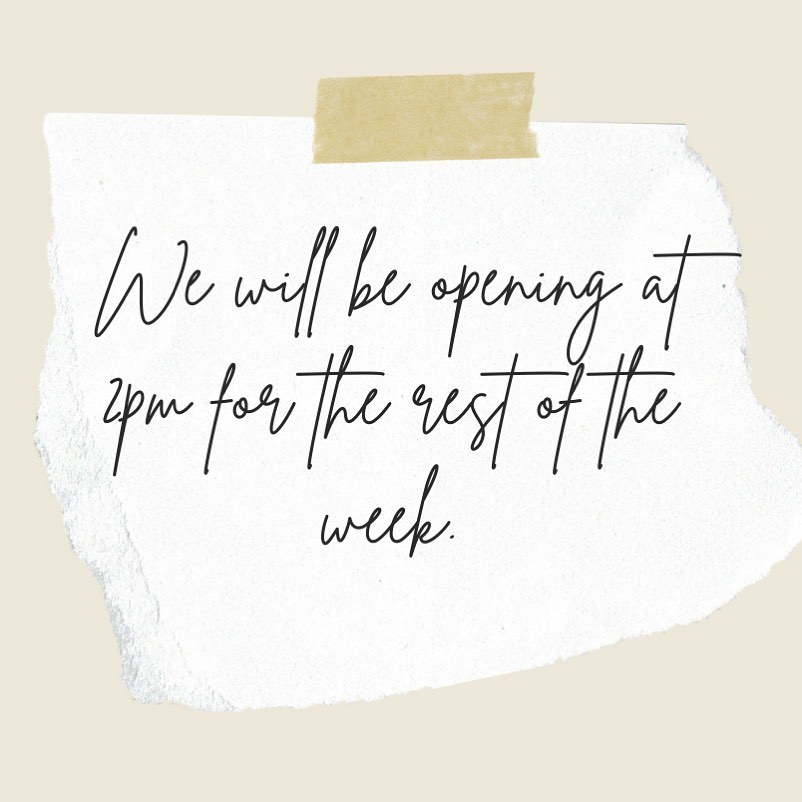 We will be opening at
2pm for the rest of the
week.